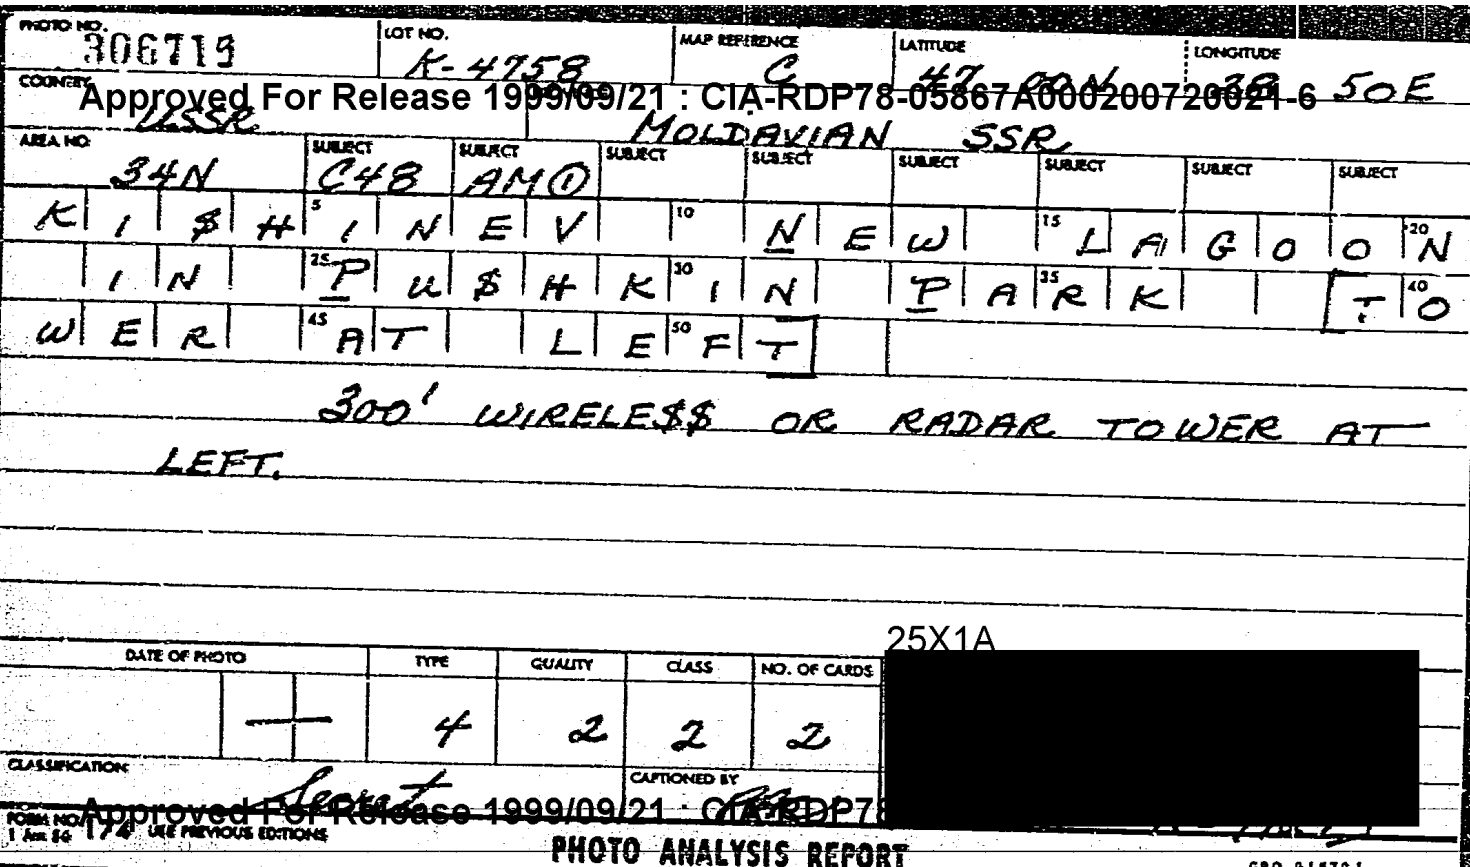 PHOTO NO. 306719 LOT NO. K-4758 MAP REFERENCE C LATITUDE 47 00N LONGITUDE 28 50E
COUNTRY USSR MOLDAVIAN SSR
Approved For Release 1999/09/21 : CIA-RDP78-05867A000200720021-6
AREA NO. 34N SUBJECT C48 SUBJECT AM① SUBJECT SUBJECT SUBJECT SUBJECT SUBJECT SUBJECT
KI$HINEV NEW LAGOON
IN PU$HKIN PARK TO
WER AT LEFT
300' WIRELE$$ OR RADAR TOWER AT
LEFT.
25X1A
DATE OF PHOTO TYPE QUALITY CLASS NO. OF CARDS
4 2 2 2
CLASSIFICATION Secret CAPTIONED BY
Approved For Release 1999/09/21 : CIA-RDP78
FORM NO. 174 USE PREVIOUS EDITIONS
1 Apr 56
PHOTO ANALYSIS REPORT